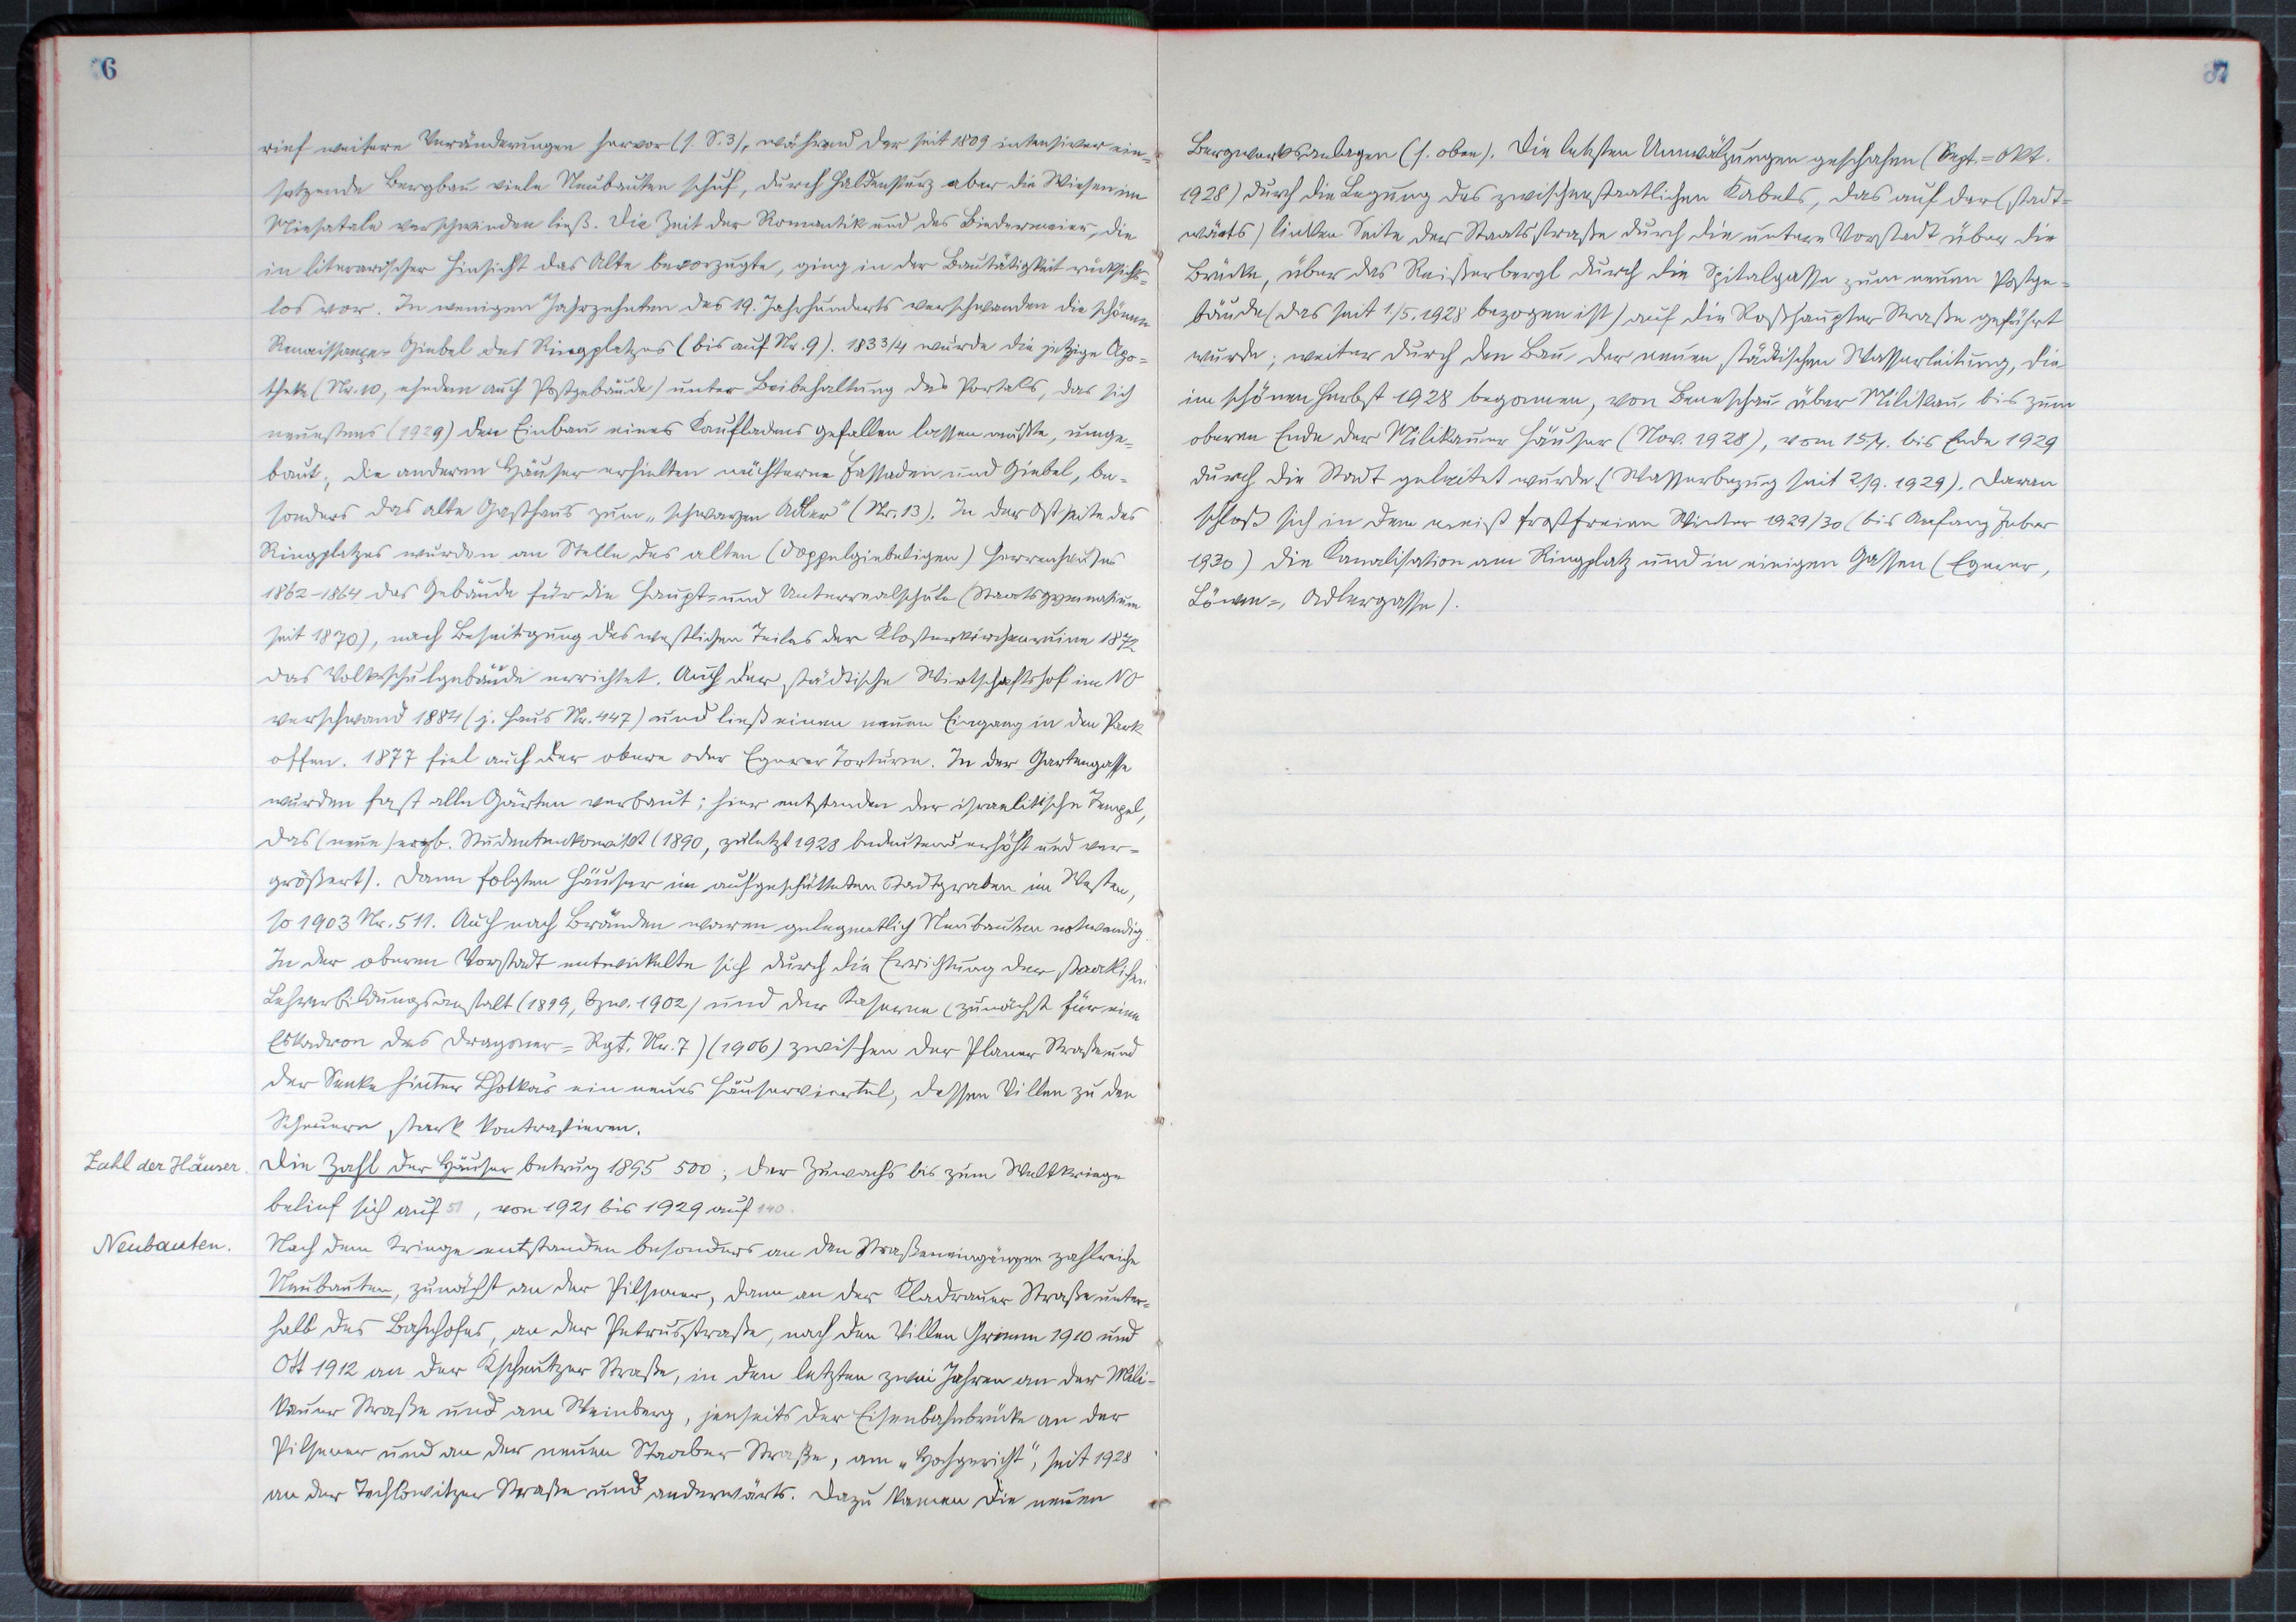 6
rief weitere Veränderungen hervor (s. S. 3), während der seit 1809 intensiver ein-
setzende Bergbau viele Neubauten schuf, durch Haldensturz aber die Wiesen im
Miesatale verschwinden ließ. Die Zeit der Romantik und des Biedermeier, die
in literarischer Hinsicht das Alte bevorzugte, ging in der Bautätigkeit rücksichts-
los vor. In wenigen Jahrzehnten des 19. Jahrhunderts verschwanden die schönen
Renaissance-Giebel des Ringplatzes (bis auf Nr. 9). 1833/4 wurde die jetzige Apo=
theke (Nr. 10, ehedem auch Postgebäude) unter Beibehaltung des Portals, das sich
neuestens (1929) den Einbau eines Kaufladens gefallen lassen mußte, umge-
baut; die anderen Häuser erhielten nüchterne Fassaden und Giebel, be-
sonders das alte Gasthaus zum „schwarzen Adler" (Nr. 13). In der Ostseite des
Ringplatzes wurden an Stelle des alten (doppelgiebeligen) Herrenhauses
1862-1864 das Gebäude für die Haupt= und Unterrealschule (Staatsgymnasium
seit 1870), nach Beseitigung des westlichen Teiles der Klosterkirchenruine 1872
das Volksschulgebäude errichtet. Auch der städtische Wirtschaftshof im NO
verschwand 1884 (j. Haus Nr. 447) und ließ einen neuen Eingang in den Park
offen. 1877 fiel auch der obere oder Egerer Torturm. In der Gartengasse
wurden fast alle Gärten verbaut; hier entstanden der israelitische Tempel,
das (neue) erzb. Studentenkonvikt (1890, zuletzt 1928 bedeutend erhöht und ver-
größert). Dann folgten Häuser im aufgeschütteten Stadtgraben im Westen,
so 1903 Nr. 511. Auch nach Bränden waren gelegentlich Neubauten notwendig.
In der oberen Vorstadt entwickelte sich durch die Errichtung der staatlichen
Lehrerbildungsanstalt (1899, bzw. 1902) und der Kaserne (zunächst für eine
Eskadron des Dragoner=Rgt. Nr. 7) (1906) zwischen der Planer Straße und
der Senke hinter Lhotka's ein neues Häuserviertel, dessen Villen zu den
Scheuern stark kontrastieren.
Zahl der Häuser. Die Zahl der Häuser betrug 1895 500; der Zuwachs bis zum Weltkriege
belief sich auf 51, von 1921 bis 1929 auf 140.
Neubauten. Nach dem Kriege entstanden besonders an den Straßeneingängen zahlreiche
Neubauten, zunächst an der Pilsener, dann an der Kladrauer Straße unter-
halb des Bahnhofes, an der Petrusstraße, nach den Villen Grimm 1910 und
Ott 1912 an der Kscheutzer Straße, in den letzten zwei Jahren an der Mili-
kauer Straße und am Weinberg, jenseits der Eisenbahnbrücke an der
Pilsener und an der neuen Staaber Straße, am „Hochgericht", seit 1928
an der Techlowitzer Straße und anderwärts. Dazu kamen die neuen
7
Bergwerksanlagen (s. oben). Die letzten Umwälzungen geschahen (Sept.=Okt.
1928) durch die Legung des zwischenstaatlichen Kabels, das auf der (stadt=
wärts) linken Seite der Staatsstraße durch die untere Vorstadt über die
Brücke, über das Reißerbergl durch die Spitalgasse zum neuen Postge=
bäude (das seit 1/5. 1928 bezogen ist) auf die Roßhaupter Straße geführt
wurde; weiter durch den Bau der neuen städtischen Wasserleitung, die
im schönen Herbst 1928 begonnen, von Beneschau über Milikau, bis zum
oberen Ende der Milikauer Häuser (Nov. 1928), vom 15/4. bis Ende 1929
durch die Stadt geleitet wurde (Wasserbezug seit 2/9. 1929). Daran
schloß sich in dem meist frostfreien Winter 1929/30 (bis Anfang Feber
1930) die Kanalisation am Ringplatz und in einigen Gassen (Egerer,
Löwen=, Adlergasse).